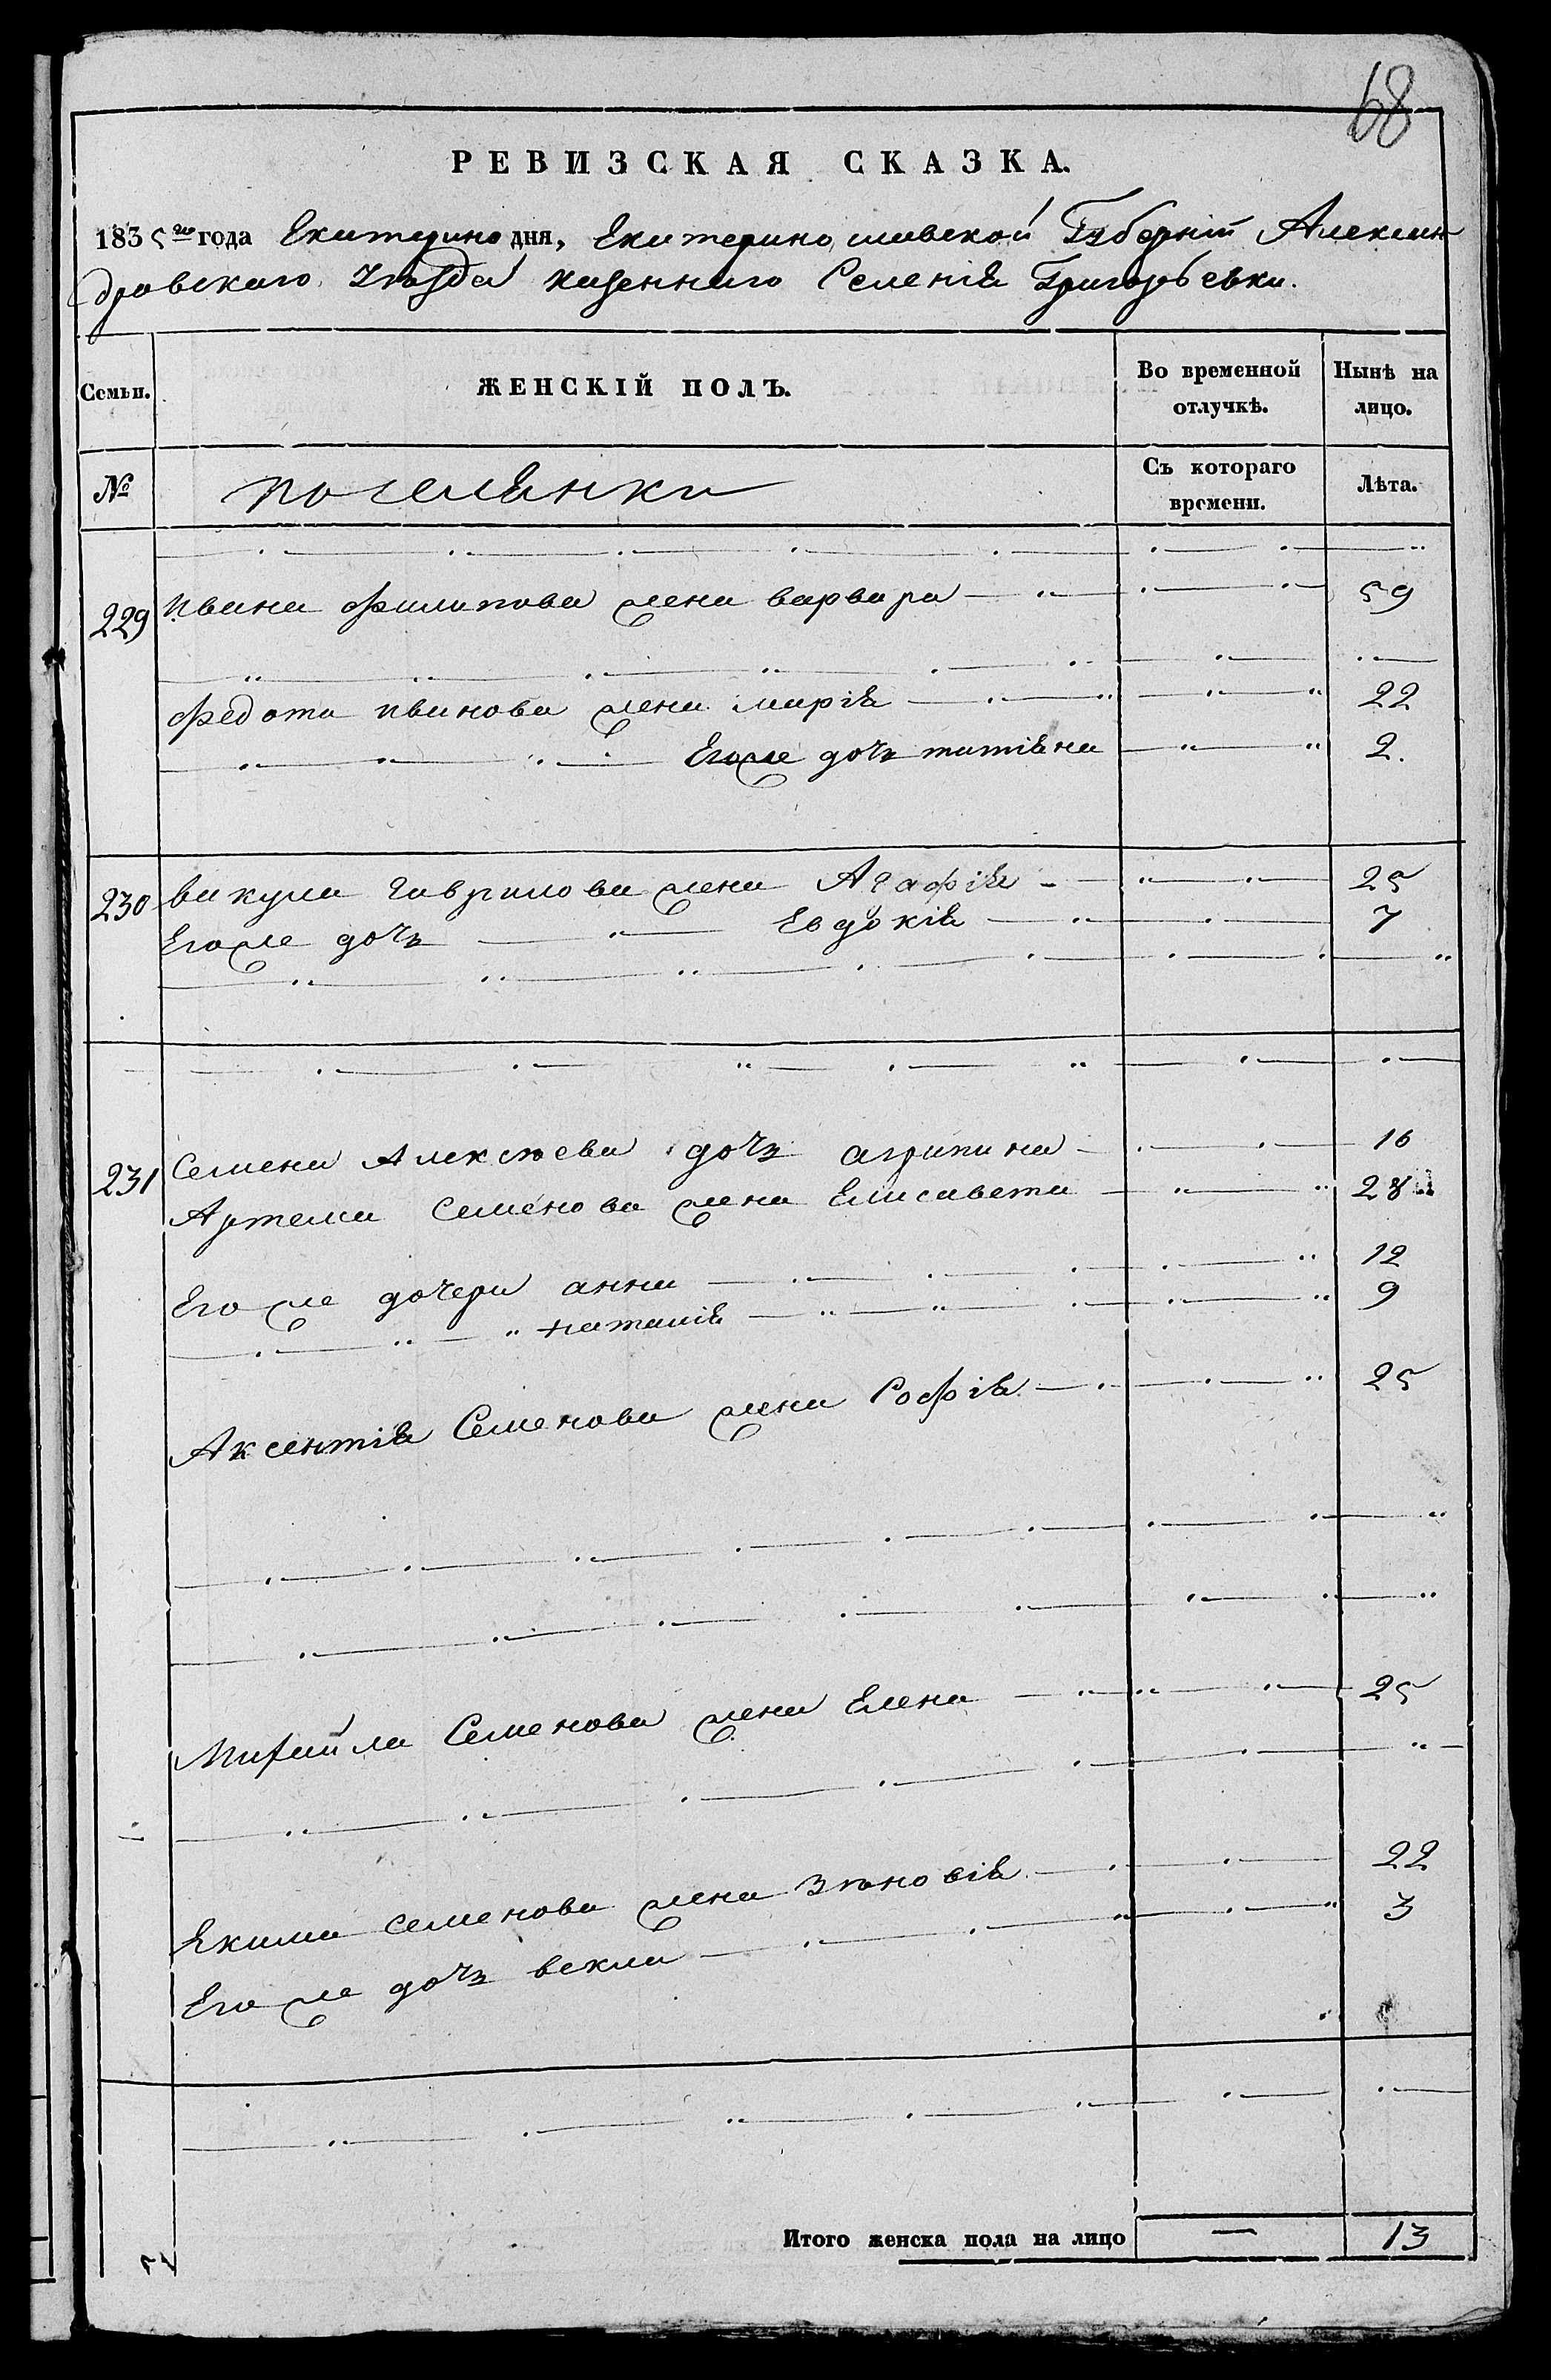 68
РЕВИЗСКАЯ СКАЗКА.
1835го года Екатерино дня, Екатеринославской Губерніи Алексан
дровскаго Уезда казеннаго Селенія Григорьевки.
Семьи. ЖЕНСКІЙ ПОЛЪ. Во временной отлучкѣ. Нынѣ на лицо.
№ поселянки Съ котораго времени. Лѣта.
229 Ивана Филипова жена варвара 59
Федота иванова жена марія 22
Егоже дочь татіяна 2.
230 викула гаврилова жена Агафія 25
Егоже дочь Евдокія 7
231 Семена Алексѣева дочь агрипина 16
Артема Семенова жена Елисавета 28
Его же дочери анна 12
наталія 9
Аксентія Семенова жена Софія 25
Михайла Семенова жена Елена 25
Екима семенова жена Зѣновія 22
Его же дочь векла 3
Итого женска пола на лицо — 13